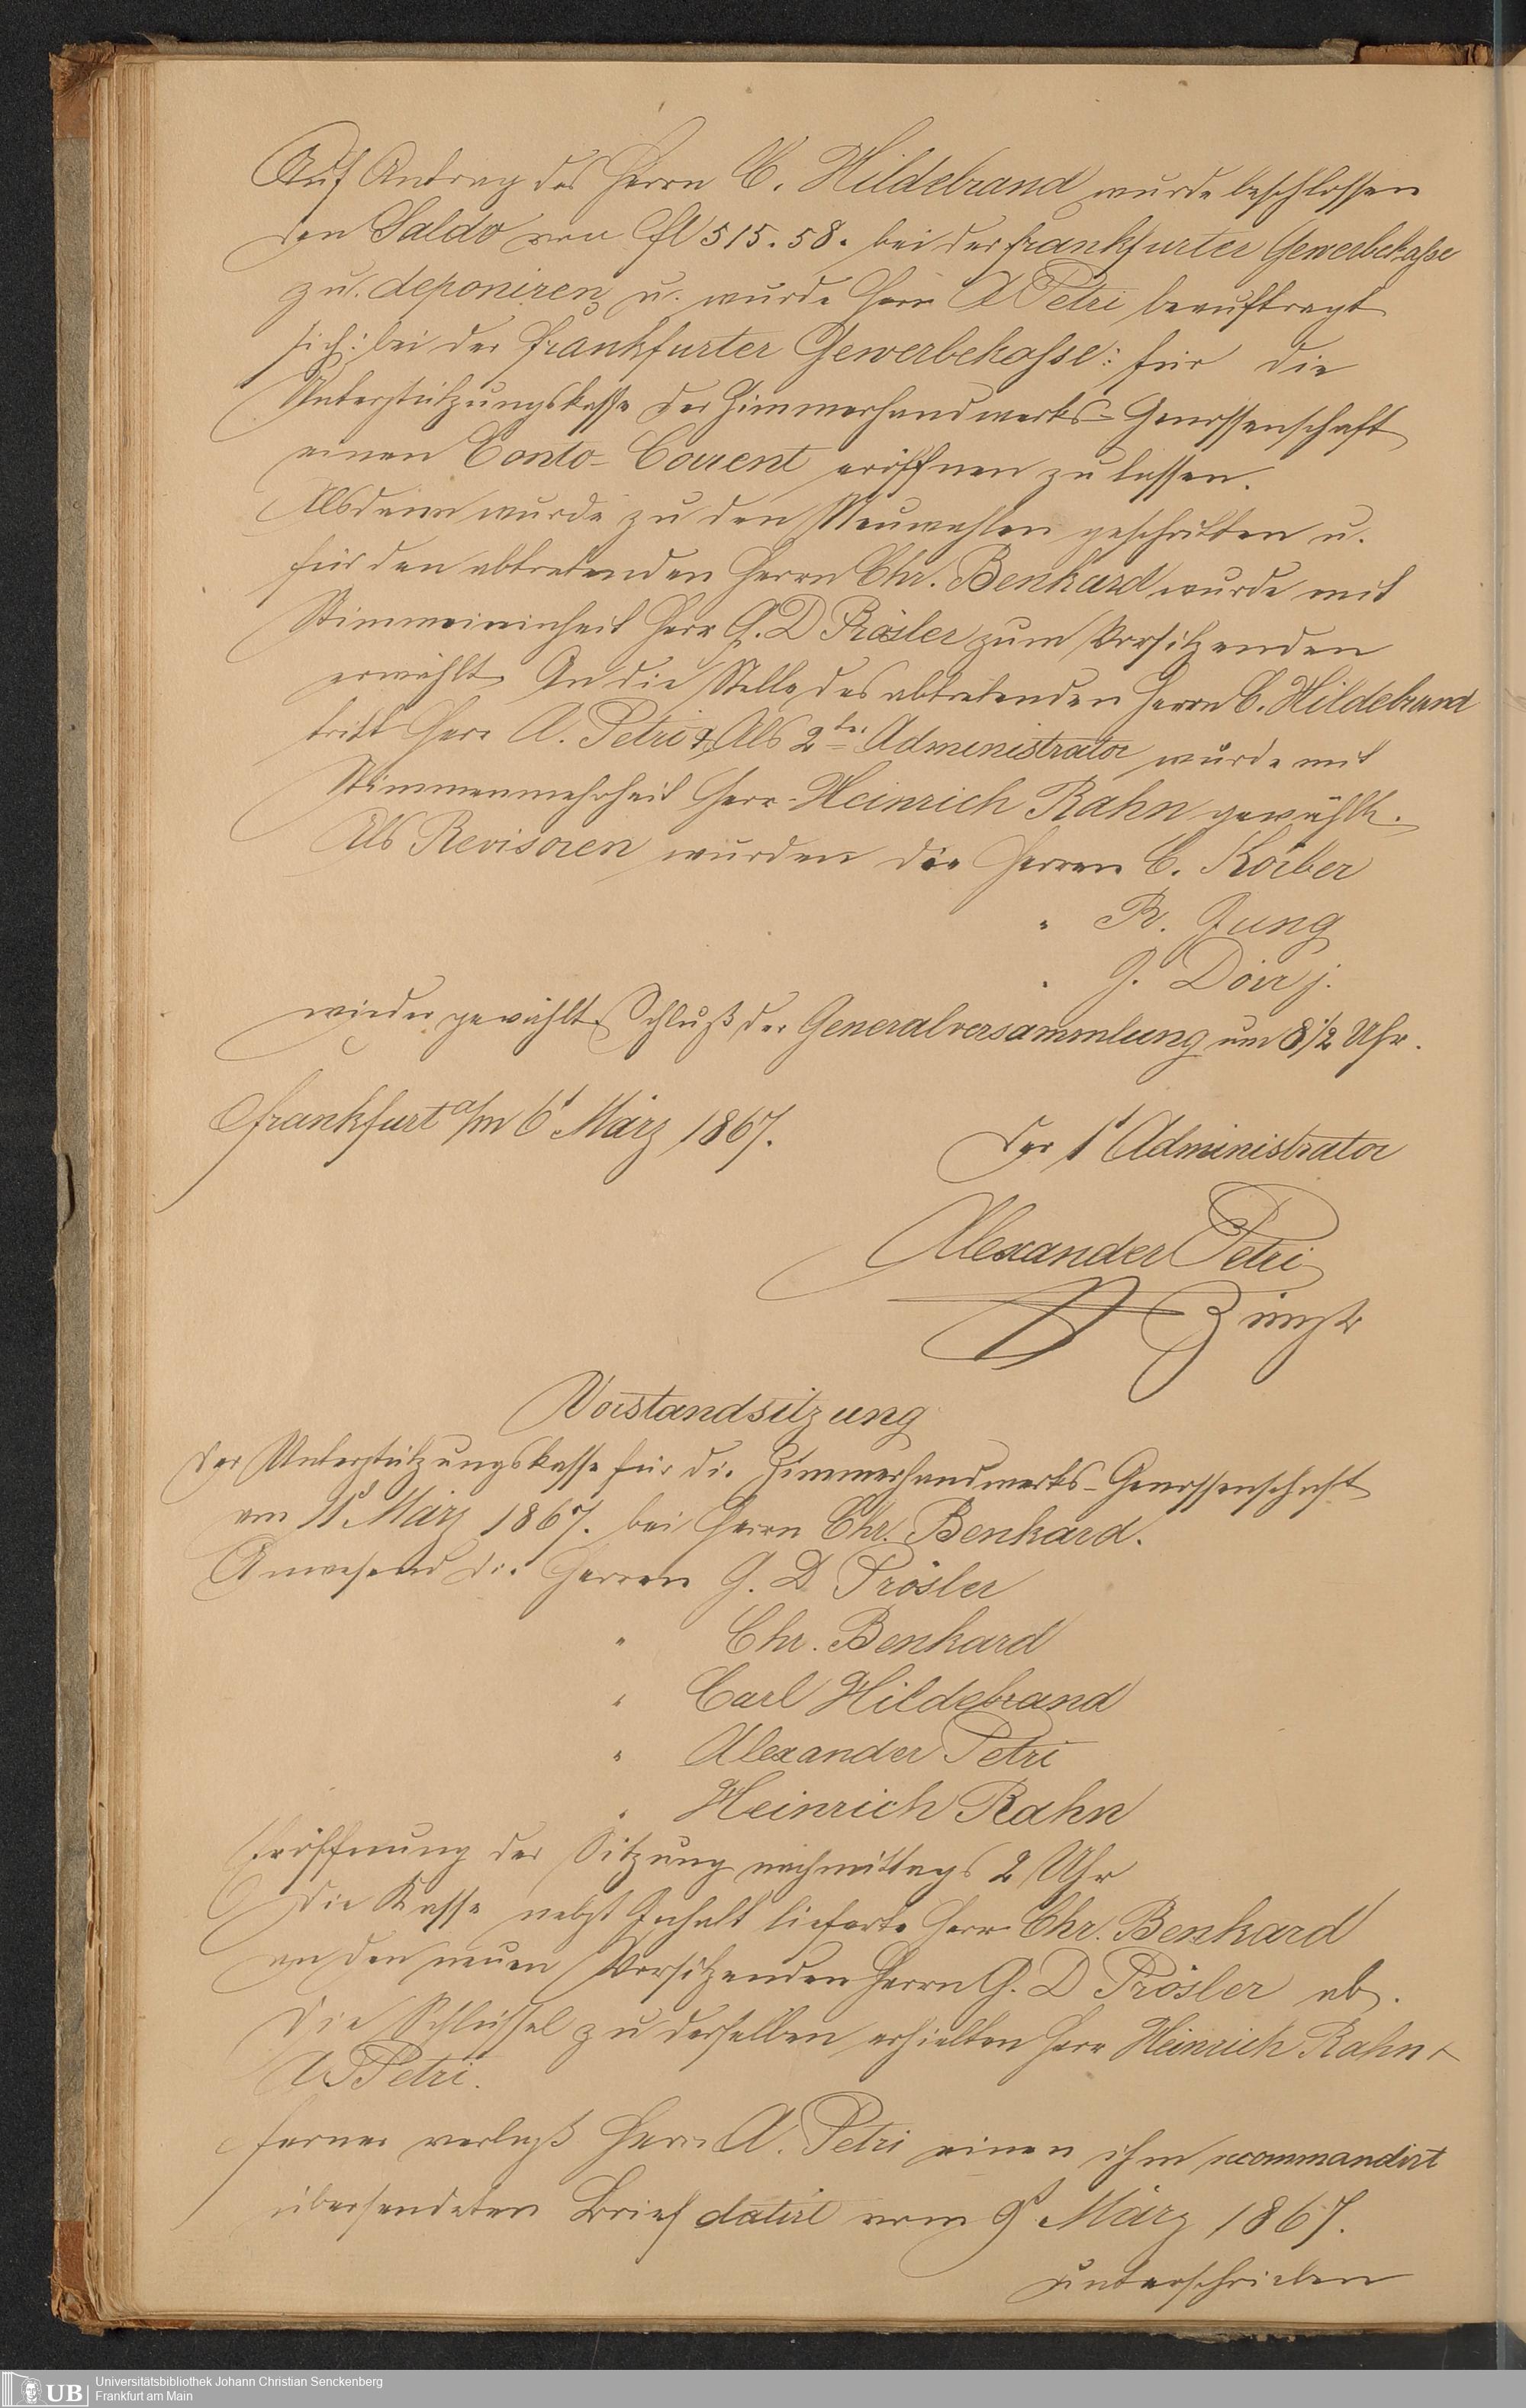 Auf Antrag des Herrn C. Hildebrand wurde beschlossen
den Saldo von fl 515. 58. bei der Frankfurter Gewerbekasse
zu deponiren u. wurde Herr A Petri beauftragt
sich: bei der Frankfurter Gewerbekasse: für die
Unterstützungskasse der Zimmerhandwerks-Genossenschaft
einen Conto-Courent eröffnen zu lassen.
Alsdann wurde zu den Neuwahlen geschritten u.
für den abtretenden Herrn Chr. Benkard wurde mit
Stimmeneinheit Herr G. D Prösler zum Vorsitzenden
erwählt. An die Stelle des abtretenden Herrn C. Hildebrand
tritt Herr A. Petri & Als 2ter Administrator wurde mit
Stimmenmehrheit Herr Heinrich Rahn gewählt.
Als Revisoren wurden die Herren C. Körber
" R. Jung
" J. Dörr j.
wieder gewählt. Schluß der Generalversammlung um 8 1/2 Uhr.
Frankfurt a/m 6t März 1867.
Der 1t Administrator
Alexander Petri
Vorstandsitzung
der Unterstützungskasse für die Zimmerhandwerks-Genossenschaft
am 11t März 1867. bei Herrn Chr. Benkard.
Anwesend die Herren G. D Prösler
" Chr. Benkard
" Carl Hildebrand
" Alexander Petri
" Heinrich Rahn
Eröffnung der Sitzung nachmittags 2 Uhr
Die Kasse nebst Inhalt lieferte Herr Chr. Benkard
an den neuen Vorsitzenden Herrn G. D Prösler ab.
Die Schlüssel zu derselben erhielten Herr Heinrich Rahn &
A Petri.
Ferner verlaß Herr A. Petri einen ihm recommandirt
übersendeten Brief datirt vom 9t März 1867.
unterschrieben
UB Universitätsbibliothek Johann Christian Senckenberg
Frankfurt am Main